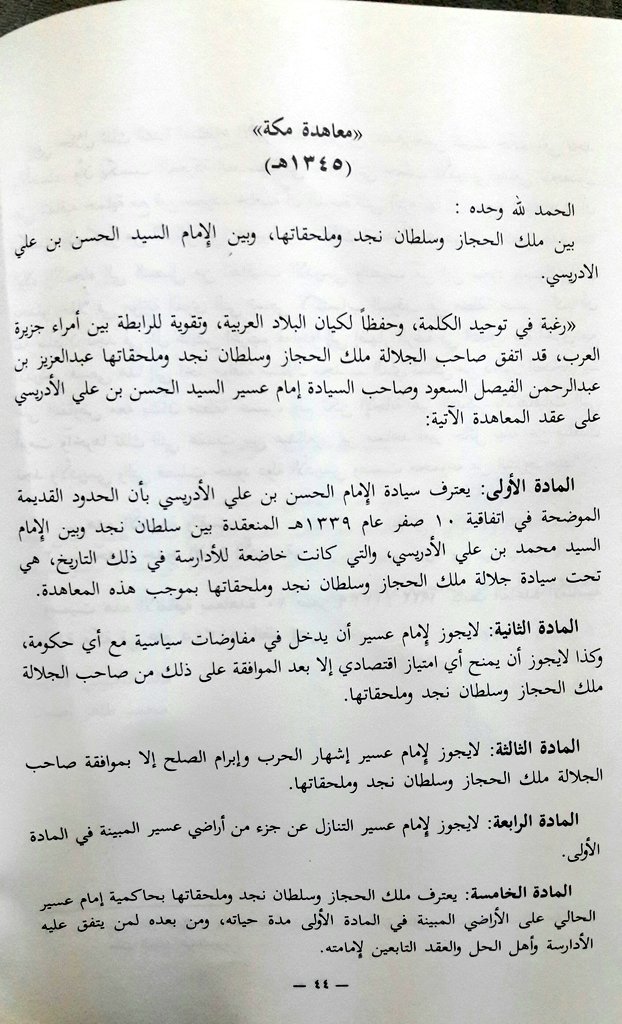 «معاهدة مكة»
(١٣٤٥هـ)
الحمد لله وحده :
بين ملك الحجاز وسلطان نجد وملحقاتها، وبين الإمام السيد الحسن بن علي
الادريسي.
«رغبة في توحيد الكلمة، وحفظاً لكيان البلاد العربية، وتقوية للرابطة بين أمراء جزيرة
العرب، قد اتفق صاحب الجلالة ملك الحجاز وسلطان نجد وملحقاتها عبدالعزيز بن
عبدالرحمن الفيصل السعود وصاحب السيادة إمام عسير السيد الحسن بن علي الأدريسي
على عقد المعاهدة الآتية:
المادة الأولى: يعترف سيادة الإمام الحسن بن علي الأدريسي بأن الحدود القديمة
الموضحة في اتفاقية ١٠ صفر عام ١٣٣٩هـ المنعقدة بين سلطان نجد وبين الإمام
السيد محمد بن علي الأدريسي، والتي كانت خاضعة للأدارسة في ذلك التاريخ، هي
تحت سيادة جلالة ملك الحجاز وسلطان نجد وملحقاتها بموجب هذه المعاهدة.
المادة الثانية: لايجوز لإمام عسير أن يدخل في مفاوضات سياسية مع أي حكومة،
وكذا لايجوز أن يمنح أي امتياز اقتصادي إلا بعد الموافقة على ذلك من صاحب الجلالة
ملك الحجاز وسلطان نجد وملحقاتها.
المادة الثالثة: لايجوز لإمام عسير إشهار الحرب وإبرام الصلح إلا بموافقة صاحب
الجلالة ملك الحجاز وسلطان نجد وملحقاتها.
المادة الرابعة: لايجوز لإمام عسير التنازل عن جزء من أراضي عسير المبينة في المادة
الأولى.
المادة الخامسة: يعترف ملك الحجاز وسلطان نجد وملحقاتها بحاكمية إمام عسير
الحالي على الأراضي المبينة في المادة الأولى مدة حياته، ومن بعده لمن يتفق عليه
الأدارسة وأهل الحل والعقد التابعين لإمامته.
— ٤٤ —